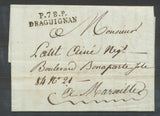 P.78.P.
DRAGUIGNAN
A Monsieur
Petit Ainé Negt
Boulevard Bonaparte
N° 21
à Marseille